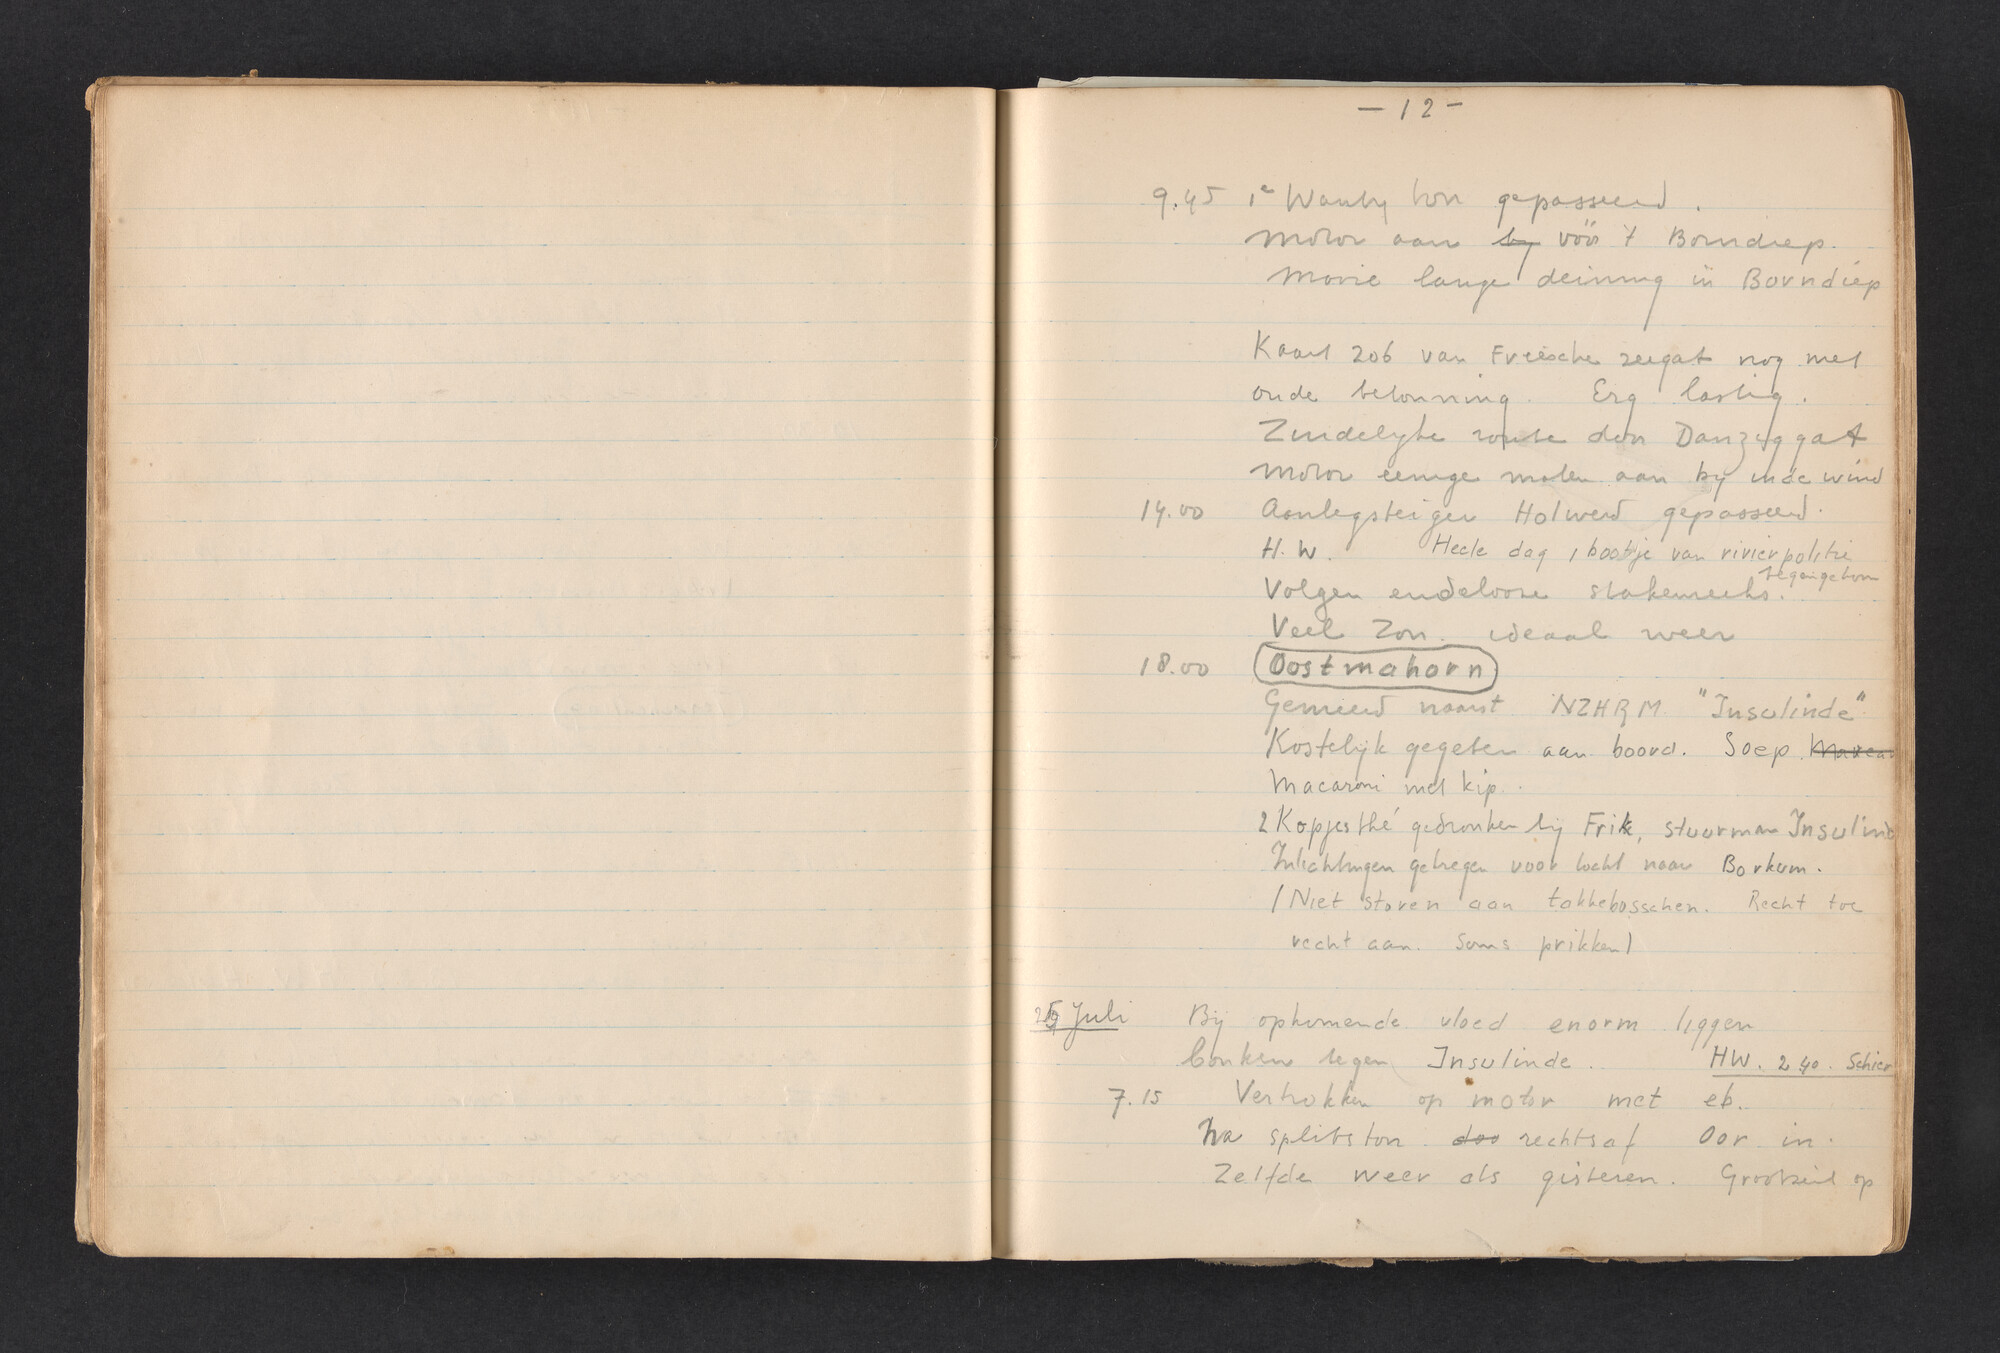 - 12 -
9.45 1e Wantij ton gepasseerd.
Motor aan ~~bij~~ vóór 't Borndiep.
Mooie lange deining in Borndiep
Kaart 206 van Friesche zeegat nog met
oude betonning. Erg lastig.
Zuidelijke route door Danziggat
Motor eenige malen aan bij inde wind
14.00 Aanlegsteiger Holwerd gepasseerd.
H.W. Heele dag 1 bootje van rivierpolitie
tegengekomen
Volgen endeloose stakenreeks.
Veel zon. ideaal weer
18.00 Oostmahorn
Gemeerd naast NZHRM "Insulinde"
Kostelijk gegeten aan boord. Soep.
Macaroni met kip.
2 Kopjes thé gedronken bij Frik, stuurman Insulinde
Inlichtingen gekregen voor tocht naar Borkum.
(Niet storen aan takkebosschen. Recht toe
recht aan. Soms prikken)
25 Juli Bij opkomende vloed enorm liggen
bonken tegen Insulinde. HW. 2.40. Schier
7.15 Vertrokken op motor met eb.
Na splitston ~~doo~~ rechtsaf Oor in.
Zelfde weer als gisteren. Grootzeil op